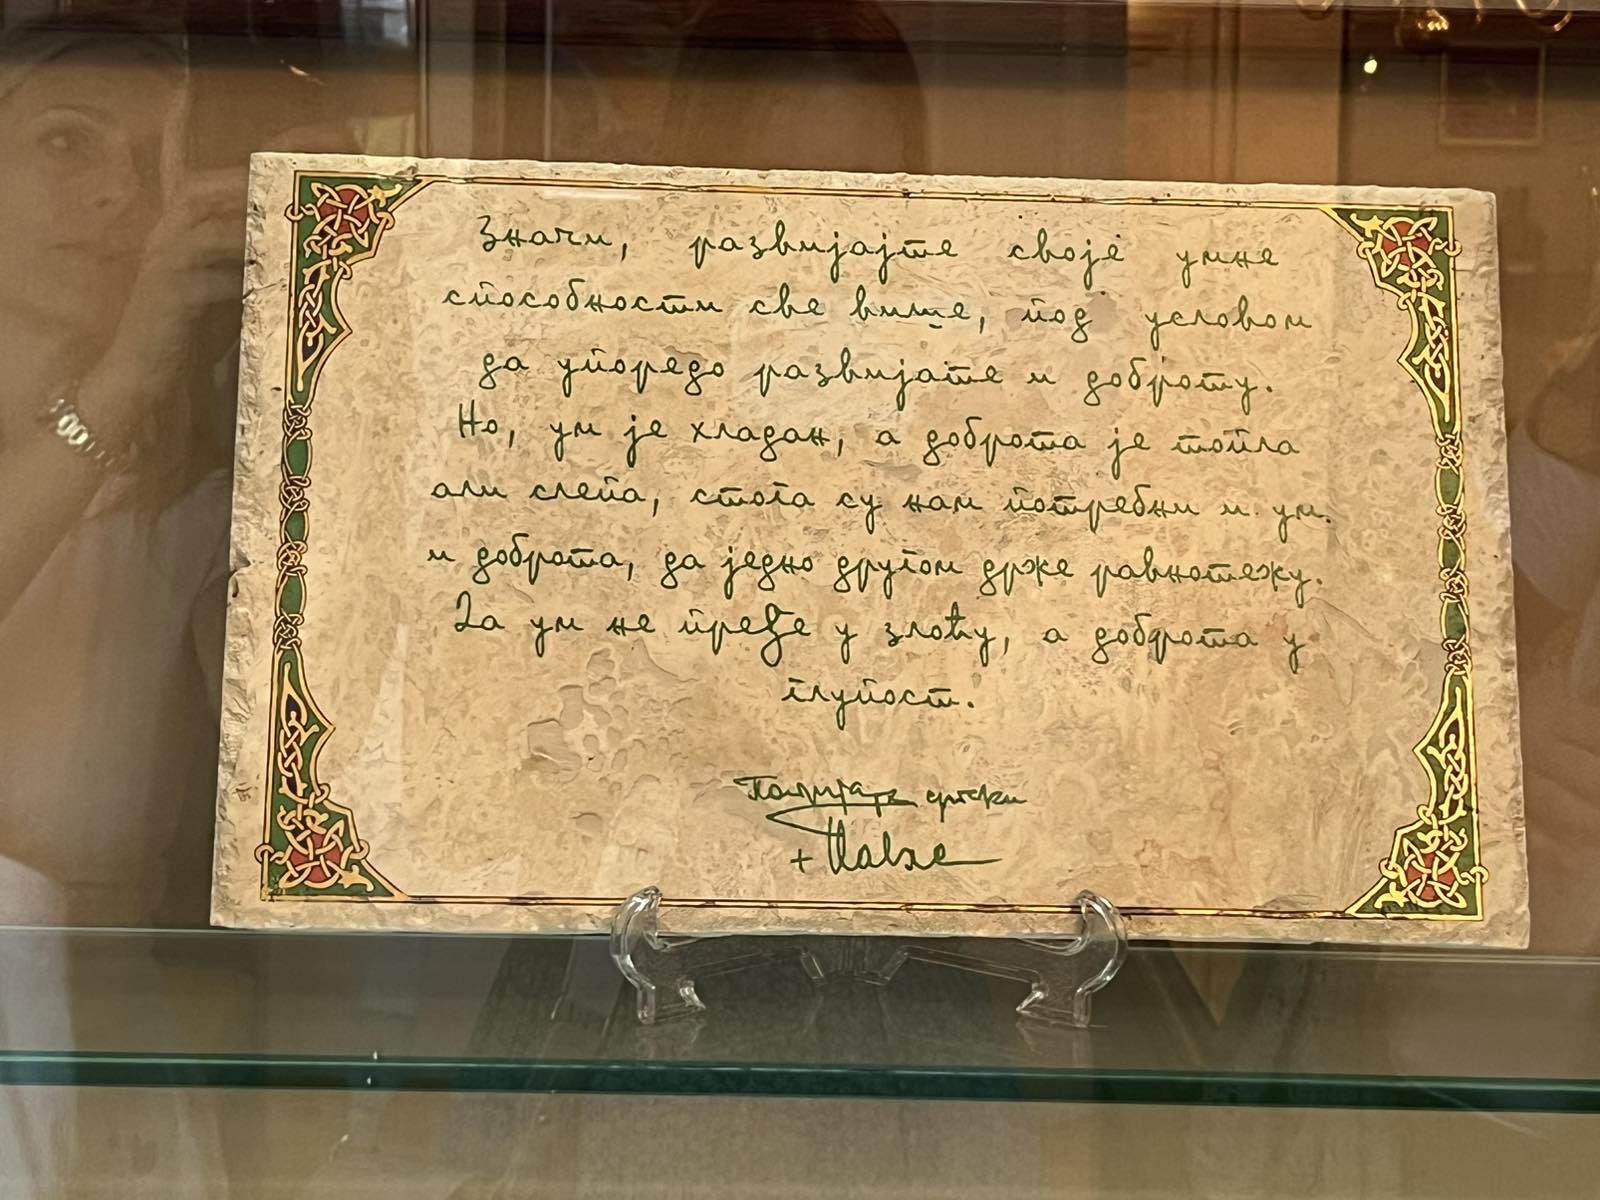 Значи, развијајте своје умне
способности све више, под условом
да упоредо развијате и доброту.
Но, ум је хладан, а доброта је топла
али слепа, стога су нам потребни и ум
и доброта, да једно другом држе равнотежу.
Да ум не пређе у злоћу, а доброта у
глупост.
Патријарх српски
+ Павле